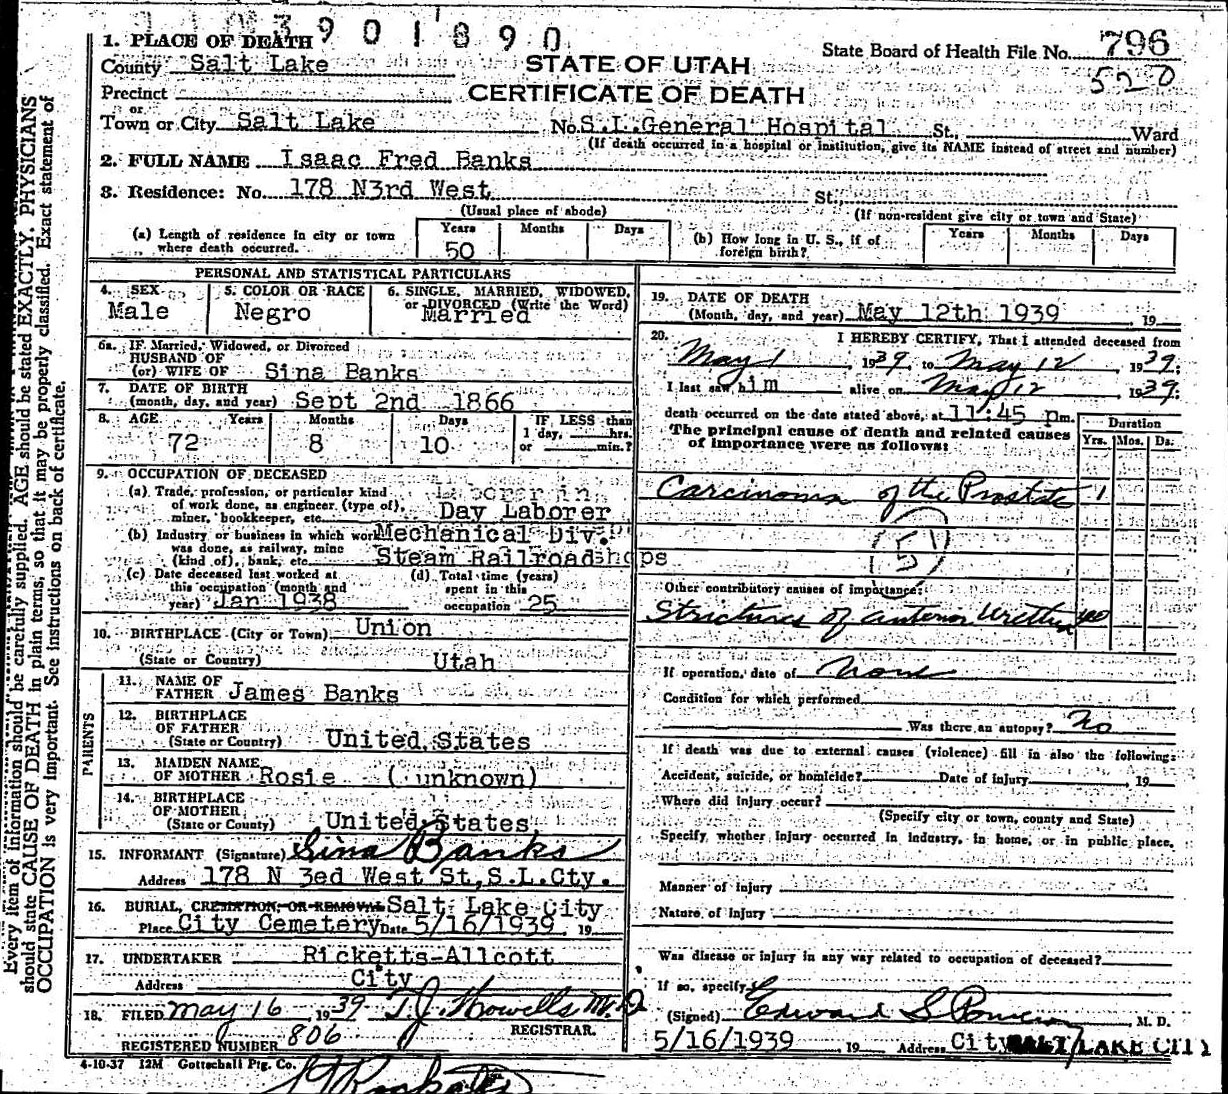 3901890
1. PLACE OF DEATH
State Board of Health File No. 796
County Salt Lake
STATE OF UTAH
520
Precinct
CERTIFICATE OF DEATH
or
Town or City Salt Lake No. S.L.General Hospital St., Ward
(If death occurred in a hospital or institution, give its NAME instead of street and number)
2. FULL NAME Isaac Fred Banks
3. Residence: No. 178 N3rd West St.,
(Usual place of abode) (If non-resident give city or town and State)
(a) Length of residence in city or town where death occurred. Years 50 Months Days
(b) How long in U. S., if of foreign birth? Years Months Days
PERSONAL AND STATISTICAL PARTICULARS
4. SEX Male
5. COLOR OR RACE Negro
6. SINGLE, MARRIED, WIDOWED, or DIVORCED (Write the Word) Married
6a. IF Married, Widowed, or Divorced
HUSBAND OF
(or) WIFE OF Sina Banks
7. DATE OF BIRTH
(month, day, and year) Sept 2nd 1866
8. AGE Years Months Days IF LESS than
72 8 10 1 day, hrs.
or min.?
9. OCCUPATION OF DECEASED
(a) Trade, profession, or particular kind Laborer in
of work done, as engineer (type of), Day Laborer
miner, bookkeeper, etc.
(b) Industry or business in which work Mechanical Div.
was done, as railway, mine Steam Railroadshops
(kind of), bank, etc.
(c) Date deceased last worked at this occupation (month and year) Jan 1938
(d) Total time (years) spent in this occupation 25
10. BIRTHPLACE (City or Town) Union
(State or Country) Utah
PARENTS
11. NAME OF
FATHER James Banks
12. BIRTHPLACE
OF FATHER
(State or Country) United States
13. MAIDEN NAME
OF MOTHER Rosie (unknown)
14. BIRTHPLACE
OF MOTHER
(State or Country) United States
15. INFORMANT (Signature) Sina Banks
Address 178 N 3ed West St,S.L.Cty.
16. BURIAL, CREMATION, OR REMOVAL Salt Lake City
Place City Cemetery Date 5/16/1939 19
17. UNDERTAKER Ricketts-Allcott
Address City
18. FILED May 16 1939 T.J. Howells M.D
REGISTRAR.
REGISTERED NUMBER 806
4-10-37 12M Gottschall Ptg. Co.
19. DATE OF DEATH
(Month, day, and year) May 12th 1939 , 19
20. I HEREBY CERTIFY, That I attended deceased from
May 1 , 1939, to May 12 1939;
I last saw him alive on May 12 1939;
death occurred on the date stated above, at 11:45 pm.
The principal cause of death and related causes
of importance were as follows:
Duration
Yrs. Mos. Da.
Carcinoma of the Prostate 1
51
Other contributory causes of importance:
Strictures of anterior Urethra
If operation, date of none
Condition for which performed
Was there an autopsy? No
If death was due to external causes (violence) fill in also the following:
Accident, suicide, or homicide? Date of injury , 19
Where did injury occur?
(Specify city or town, county and State)
Specify whether injury occurred in industry, in home, or in public place.
Manner of injury
Nature of injury
Was disease or injury in any way related to occupation of deceased?
If so, specify
(Signed) Edward S Pomeroy , M. D.
5/16/1939 , 19 Address City SALT LAKE CITY
Every item of information should be carefully supplied. AGE should be stated EXACTLY. PHYSICIANS
should state CAUSE OF DEATH in plain terms, so that it may be properly classified. Exact statement of
OCCUPATION is very important. See instructions on back of certificate.